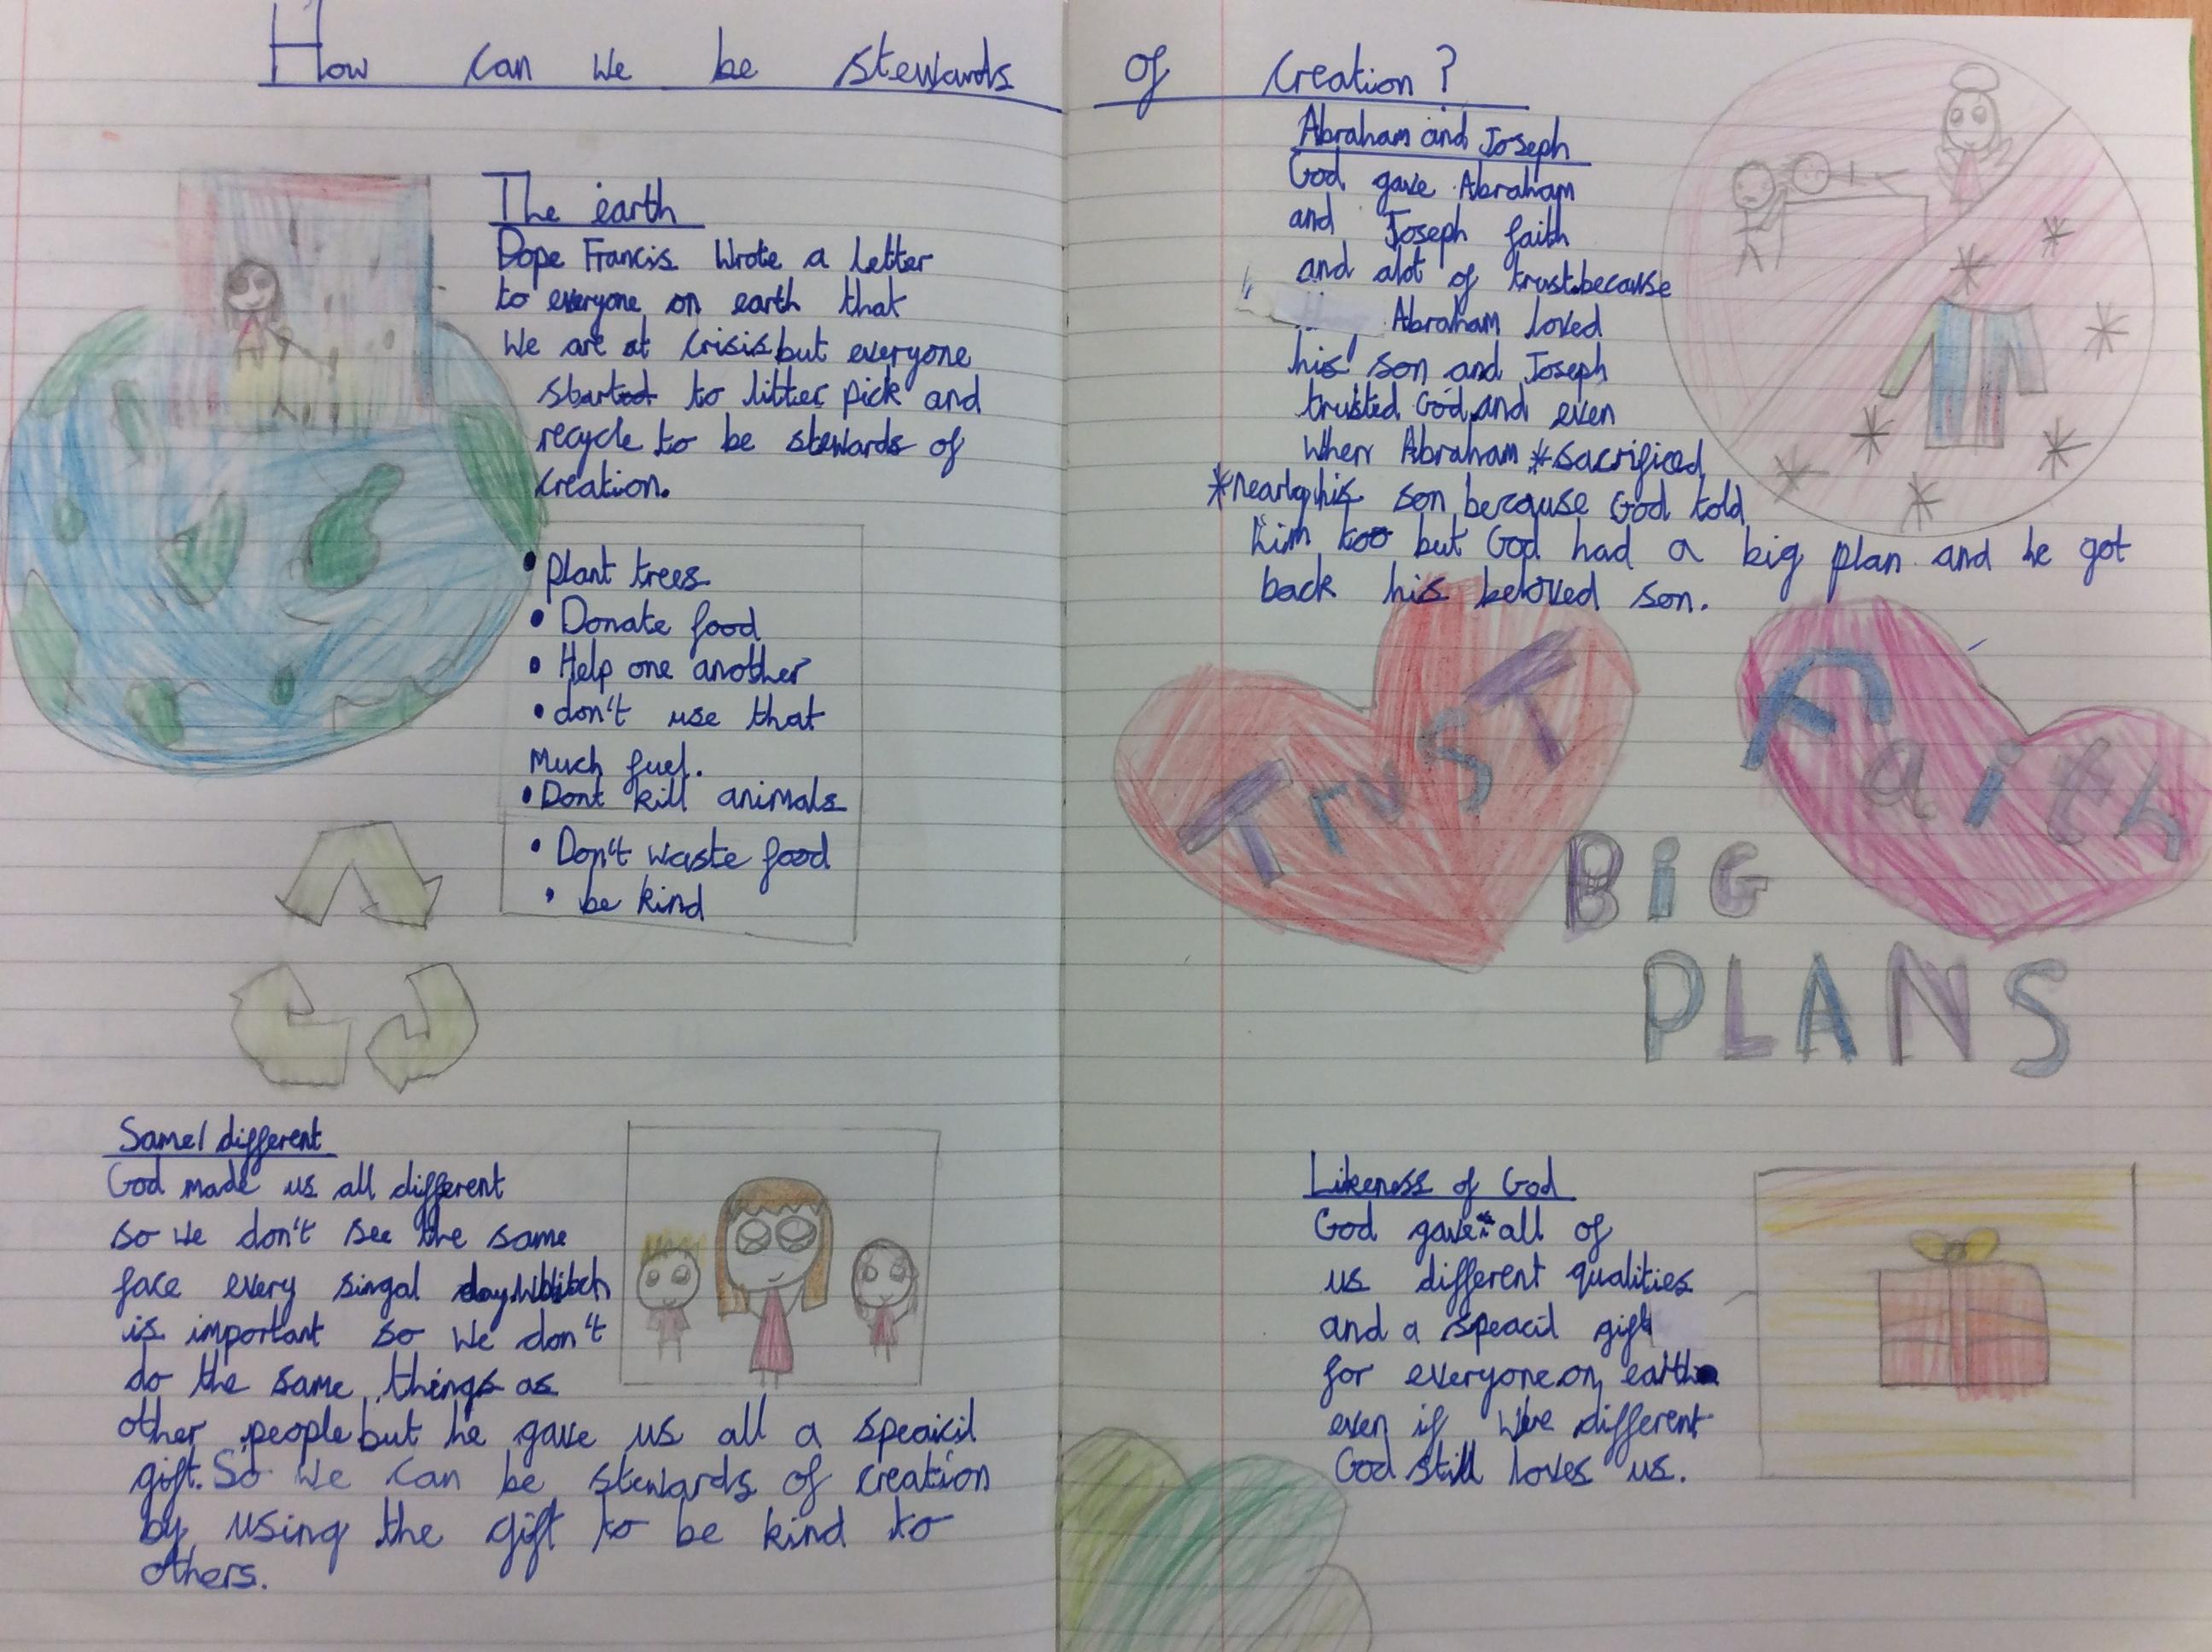 How can we be stewards of creation?
The earth
Pope Francis Wrote a letter
to everyone on earth that
We are at crisis but everyone
started to litter pick and
recycle to be stewards of
creation.
• plant trees
• Donate food
• Help one another
• don't use that
Much fuel.
• Dont kill animals
• Don't waste food
• be kind
Same/different
God made us all different
so we don't see the same
face every singal day. Whitch
is important so we don't
do the same things as
other people but he gave us all a speaicil
gift. So we can be stewards of creation
by using the gift to be kind to
others.
Abraham and Joseph
God gave Abraham
and Joseph faith
and alot of trust because
Abraham loved
his son and Joseph
trusted God and even
When Abraham *sacrificed
*nearly his son because God told
him too but God had a big plan and he got
back his beloved son.
TrusT
Faith
BiG
PLANS
Likeness of God
God gave all of
us different qualities
and a speacil gift
for everyone on earth
even if We're different
God still loves us.